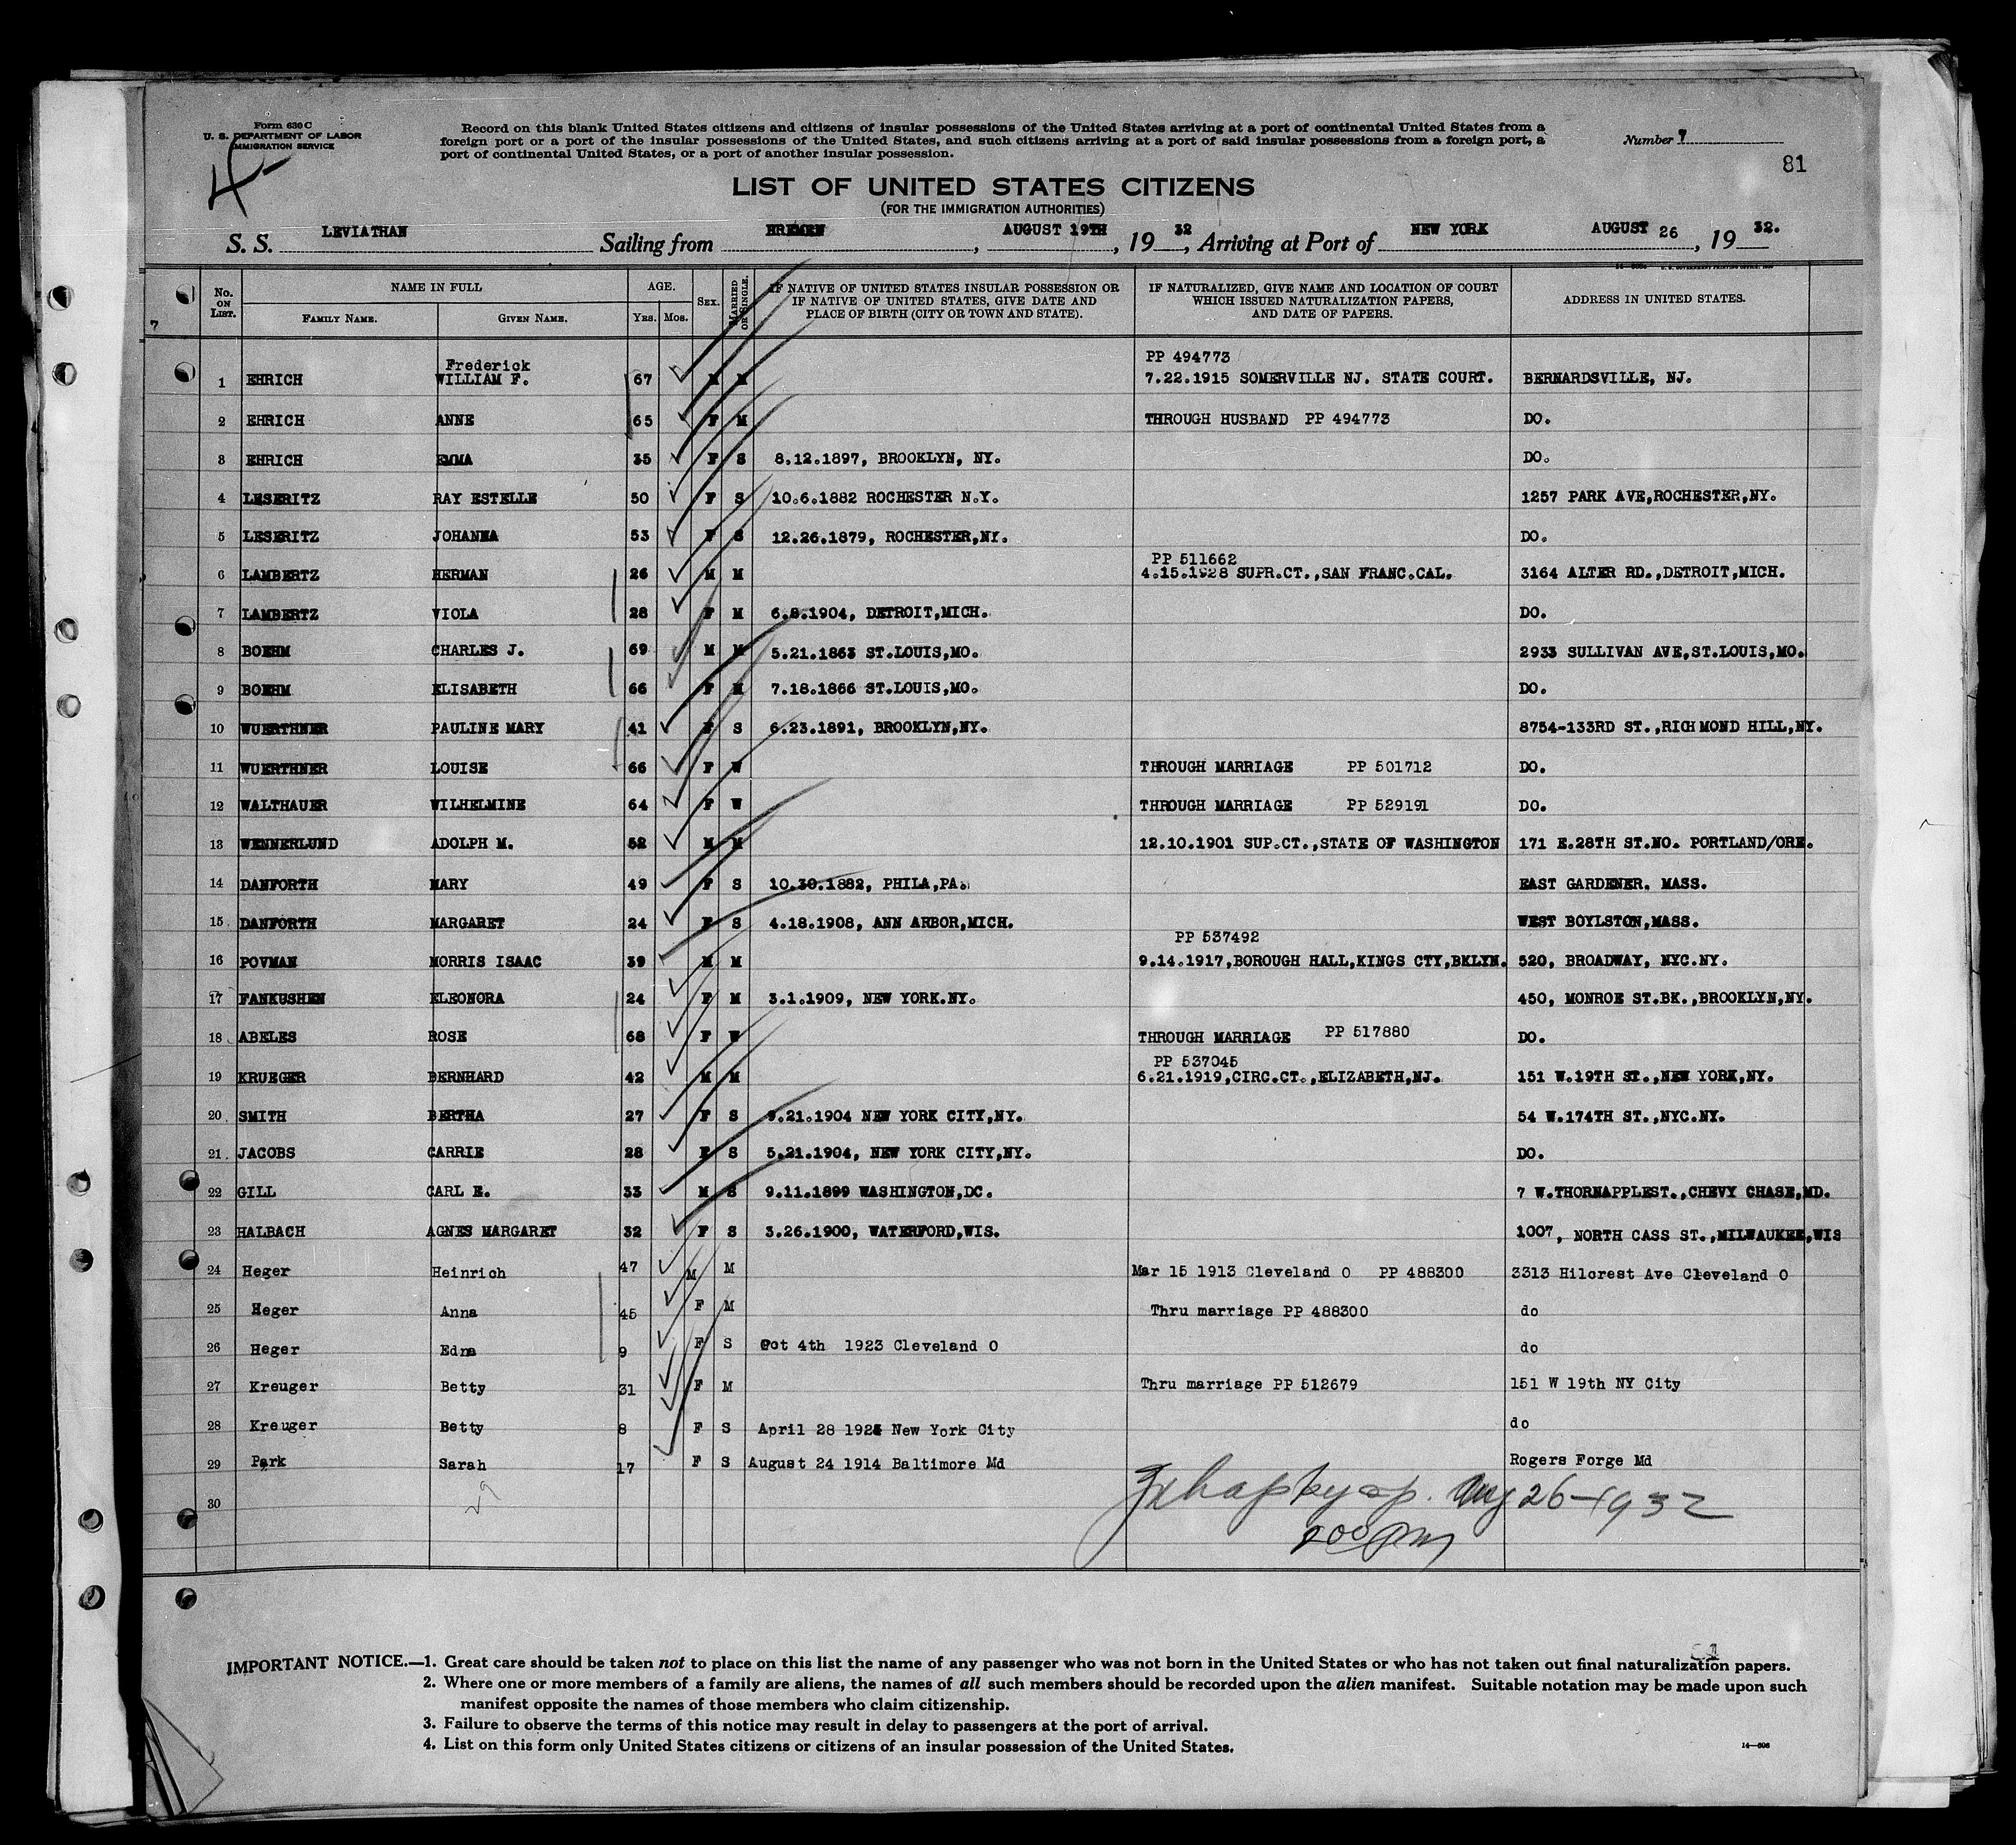 Form 630 C
U. S. DEPARTMENT OF LABOR
IMMIGRATION SERVICE
4-
Record on this blank United States citizens and citizens of insular possessions of the United States arriving at a port of continental United States from a
foreign port or a port of the insular possessions of the United States, and such citizens arriving at a port of said insular possessions from a foreign port, a
port of continental United States, or a port of another insular possession.
Number 7
81
LIST OF UNITED STATES CITIZENS
(FOR THE IMMIGRATION AUTHORITIES)
S. S. LEVIATHAN Sailing from BREMEN, AUGUST 19TH, 19 32, Arriving at Port of NEW YORK AUGUST 26, 19 32.
No. ON LIST. NAME IN FULL AGE. SEX. MARRIED OR SINGLE. IF NATIVE OF UNITED STATES INSULAR POSSESSION OR IF NATIVE OF UNITED STATES, GIVE DATE AND PLACE OF BIRTH (CITY OR TOWN AND STATE). IF NATURALIZED, GIVE NAME AND LOCATION OF COURT WHICH ISSUED NATURALIZATION PAPERS, AND DATE OF PAPERS. ADDRESS IN UNITED STATES.
7 FAMILY NAME. GIVEN NAME. YRS. MOS.
Frederick PP 494773
1 EHRICH WILLIAM F. 67 M M 7.22.1915 SOMERVILLE NJ. STATE COURT. BERNARDSVILLE, NJ.
2 EHRICH ANNE 65 F M THROUGH HUSBAND PP 494773 DO.
3 EHRICH EMMA 35 F S 8.12.1897, BROOKLYN, NY. DO.
4 LESERITZ RAY ESTELLE 50 F S 10.6.1882 ROCHESTER N.Y. 1257 PARK AVE,ROCHESTER,NY.
5 LESERITZ JOHANNA 53 F S 12.26.1879, ROCHESTER,NY. DO.
PP 511662
6 LAMBERTZ HERMAN 26 M M 4.15.1928 SUPR.CT.,SAN FRANC.CAL. 3164 ALTER RD.,DETROIT,MICH.
7 LAMBERTZ VIOLA 28 F M 6.8.1904, DETROIT,MICH. DO.
8 BOEHM CHARLES J. 69 M M 5.21.1863 ST.LOUIS,MO. 2933 SULLIVAN AVE,ST.LOUIS,MO.
9 BOEHM ELISABETH 66 F M 7.18.1866 ST.LOUIS,MO. DO.
10 WUERTHNER PAULINE MARY 41 F S 6.23.1891, BROOKLYN,NY. 8754-133RD ST.,RICHMOND HILL,NY.
11 WUERTHNER LOUISE 66 F W THROUGH MARRIAGE PP 501712 DO.
12 WALTHAUER WILHELMINE 64 F W THROUGH MARRIAGE PP 529191 DO.
13 WENNERLUND ADOLPH M. 52 M M 12.10.1901 SUP.CT.,STATE OF WASHINGTON 171 E.28TH ST.NO. PORTLAND/ORE.
14 DANFORTH MARY 49 F S 10.30.1882, PHILA,PA. EAST GARDENER. MASS.
15 DANFORTH MARGARET 24 F S 4.18.1908, ANN ARBOR,MICH. WEST BOYLSTON,MASS.
PP 537492
16 POVMAN MORRIS ISAAC 39 M M 9.14.1917,BOROUGH HALL,KINGS CTY,BKLYN. 520, BROADWAY, NYC.NY.
17 FANKUSHEN ELEONORA 24 F M 3.1.1909, NEW YORK.NY. 450, MONROE ST.BK.,BROOKLYN,NY.
18 ABELES ROSE 68 F W THROUGH MARRIAGE PP 517880 DO.
PP 537045
19 KRUEGER BERNHARD 42 M M 6.21.1919,CIRC.CT.,ELIZABETH,NJ. 151 W.19TH ST.,NEW YORK,NY.
20 SMITH BERTHA 27 F S 9.21.1904 NEW YORK CITY,NY. 54 W.174TH ST.,NYC.NY.
21 JACOBS CARRIE 28 F S 5.21.1904, NEW YORK CITY,NY. DO.
22 GILL CARL E. 33 M S 9.11.1899 WASHINGTON,DC. 7 W.THORNAPPLEST.,CHEVY CHASE,MD.
23 HALBACH AGNES MARGARET 32 F S 3.26.1900, WATERFORD,WIS. 1007, NORTH CASS ST.,MILWAUKEE,WIS
24 Heger Heinrich 47 M M Mar 15 1913 Cleveland O PP 488300 3313 Hilcrest Ave Cleveland O
25 Heger Anna 45 F M Thru marriage PP 488300 do
26 Heger Edna 9 F S Oct 4th 1923 Cleveland O do
27 Kreuger Betty 31 F M Thru marriage PP 512679 151 W 19th NY City
28 Kreuger Betty 8 F S April 28 1924 New York City do
29 Park Sarah 17 F S August 24 1914 Baltimore Md Rogers Forge Md
30 29
Aug 26-1932
200 PM
81
IMPORTANT NOTICE.—1. Great care should be taken not to place on this list the name of any passenger who was not born in the United States or who has not taken out final naturalization papers.
2. Where one or more members of a family are aliens, the names of all such members should be recorded upon the alien manifest. Suitable notation may be made upon such
manifest opposite the names of those members who claim citizenship.
3. Failure to observe the terms of this notice may result in delay to passengers at the port of arrival.
4. List on this form only United States citizens or citizens of an insular possession of the United States.
14—696